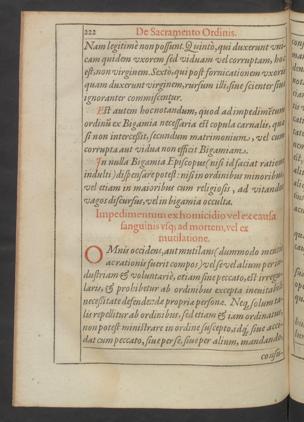 222 De Sacramento Ordinis.
Nam legitimè non possunt. Quintò, qui duxerunt vni-
cam quidem vxorem sed viduam vel corruptam, hoc
est, non virginem. Sextò, qui post fornicationem vxoris
quam duxerunt virginem, rursum illi, siue scienter siue
ignoranter commiscentur.
Est autem hoc notandum, quod ad impedimẽtum
ordinũ ex Bigamia necessaria est copula carnalis, quæ
si non intercessit, secundum matrimonium, vel cum
corrupta aut vidua non efficit Bigamiam.
In nulla Bigamia Episcopus (nisi id faciat ratione
indulti) dispensare potest: nisi in ordinibus minoribus
vel etiam in maioribus cum religiosis, ad vitandos
vagos discursus, vel in bigamia occulta.
Impedimentum ex homicidio vel ex causa
sanguinis vsq; ad mortem, vel ex
mutilatione.
OMnis occidens, aut mutilans (dummodo mentis
ac rationis fuerit compos) vel se vel alium per in-
dustriam & voluntariè, etiam sine peccato, est irregu-
laris, & prohibetur ab ordinibus excepta ineuitabili
necessitate defendẽdæ propriæ personæ. Neq; solum ta-
lis repellitur ab ordinibus, sed etiam & iam ordinatus,
non potest ministrare in ordine suscepto, idq; siue acce-
dat cum peccato, siue per se, siue per alium, mandando,
consu-